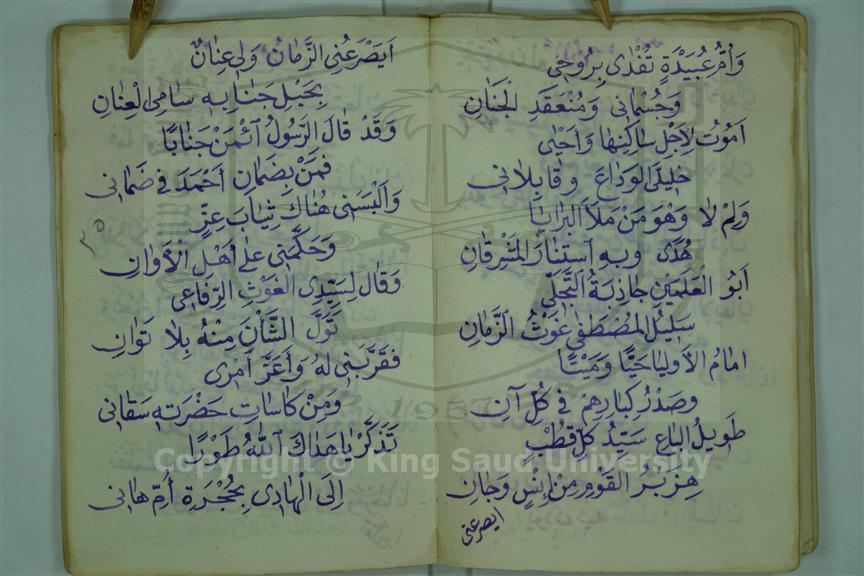 وَأُمُّ عُبَيْدَةٍ تُفْدٰى بِرُوحٖى
وَجُسْمٰانٖى وَمُنْعَقَدِ الْجَنٰانِ
اَمُوتُ لِاَجْلِ سٰاكِنِهٰا وَاَحْيٰى
خَلِيلَى الْوَدٰاعَ وَقٰابِلٰانٖى
وَلِمْ لٰا وَهْوَ مَنْ مَلَأَ الْبَرٰايٰا
هُدًى وَبِهِ اسْتَنٰارَ الْمَشْرِقٰانِ
اَبُو الْعَلَمَيْنِ جٰاذِبَةُ التَّجَلّٖى
سَلِيلُ الْمُصْطَفٰى غَوْثُ الزَّمٰانِ
اِمٰامُ الْاَوْلِيٰا حَيًّا وَمَيْتًا
وَصَدْرُ كِبٰارِهِمْ فٖى كُلِّ آنِ
طَوِيلُ الْبٰاعِ سَيِّدُ كُلِّ قُطْبٍ
هِزَبْرُ الْقَوْمِ مِنْ اِنْسٍ وَجٰانِ
ايصرعنى
اَيَصْرَعُنِى الزَّمٰانُ وَلٖى عِنٰانٌ
بِحَبْلِ جَنٰابِهِ سٰامِى الْعِنٰانِ
وَقَدْ قٰالَ الرَّسُولُ ائْمَنْ جَنٰابًا
فَمَنْ بِضَمٰانِ اَحْمَدَ فٖى ضَمٰانٖى
وَاَلْبَسَنٖى هُنٰاكَ ثِيٰابَ عِزٍّ
وَحَكَّمَنٖى عَلٰى اَهْلِ الْاَوٰانِ
٣٥
وَقٰالَ لِسَيِّدِى الْغَوْثِ الرِّفٰاعٖى
تَوَلَّ الشَّأْنَ مِنْهُ بِلٰا تَوٰانِ
فَقَرَّبَنٖى لَهُ وَاَعَزَّ اَمْرٖى
وَمِنْ كٰاسٰاتِ حَضْرَتِهِ سَقٰانٖى
تَذَكَّرْ يٰا هَدٰاكَ اللّٰهُ طَوْرًا
اِلَى الْهٰادٖى بِحُجْرَةِ اُمِّ هٰانٖى
1957
Copyright © King Saud University